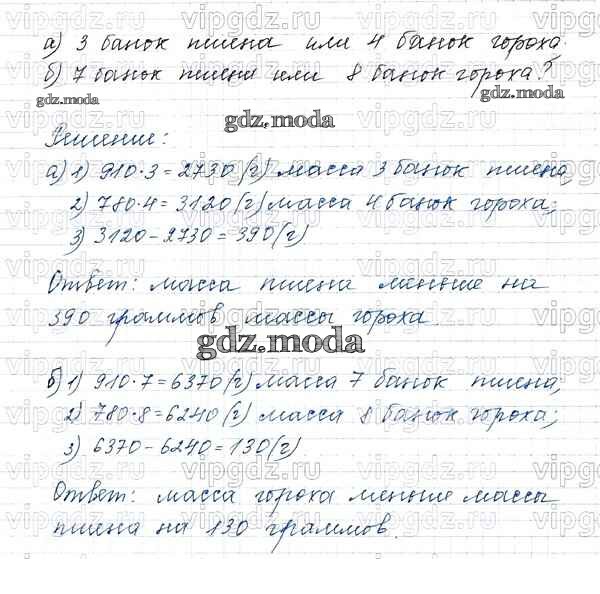 vipgdz.ru vipgdz.ru vipgdz.ru
а) 3 банок пшена или 4 банок гороха.
б) 7 банок пшена или 8 банок гороха?
gdz.moda gdz.moda
gdz.moda
Решение:
а) 1) 910·3=2730 (г) масса 3 банок пшена,
2) 780·4=3120 (г) масса 4 банок гороха;
3) 3120-2730=390 (г)
Ответ: масса пшена меньше на
390 граммов массы гороха.
gdz.moda
б) 1) 910·7=6370 (г) масса 7 банок пшена;
2) 780·8=6240 (г) масса 8 банок гороха;
3) 6370-6240=130 (г)
Ответ: масса гороха меньше массы
пшена на 130 граммов.